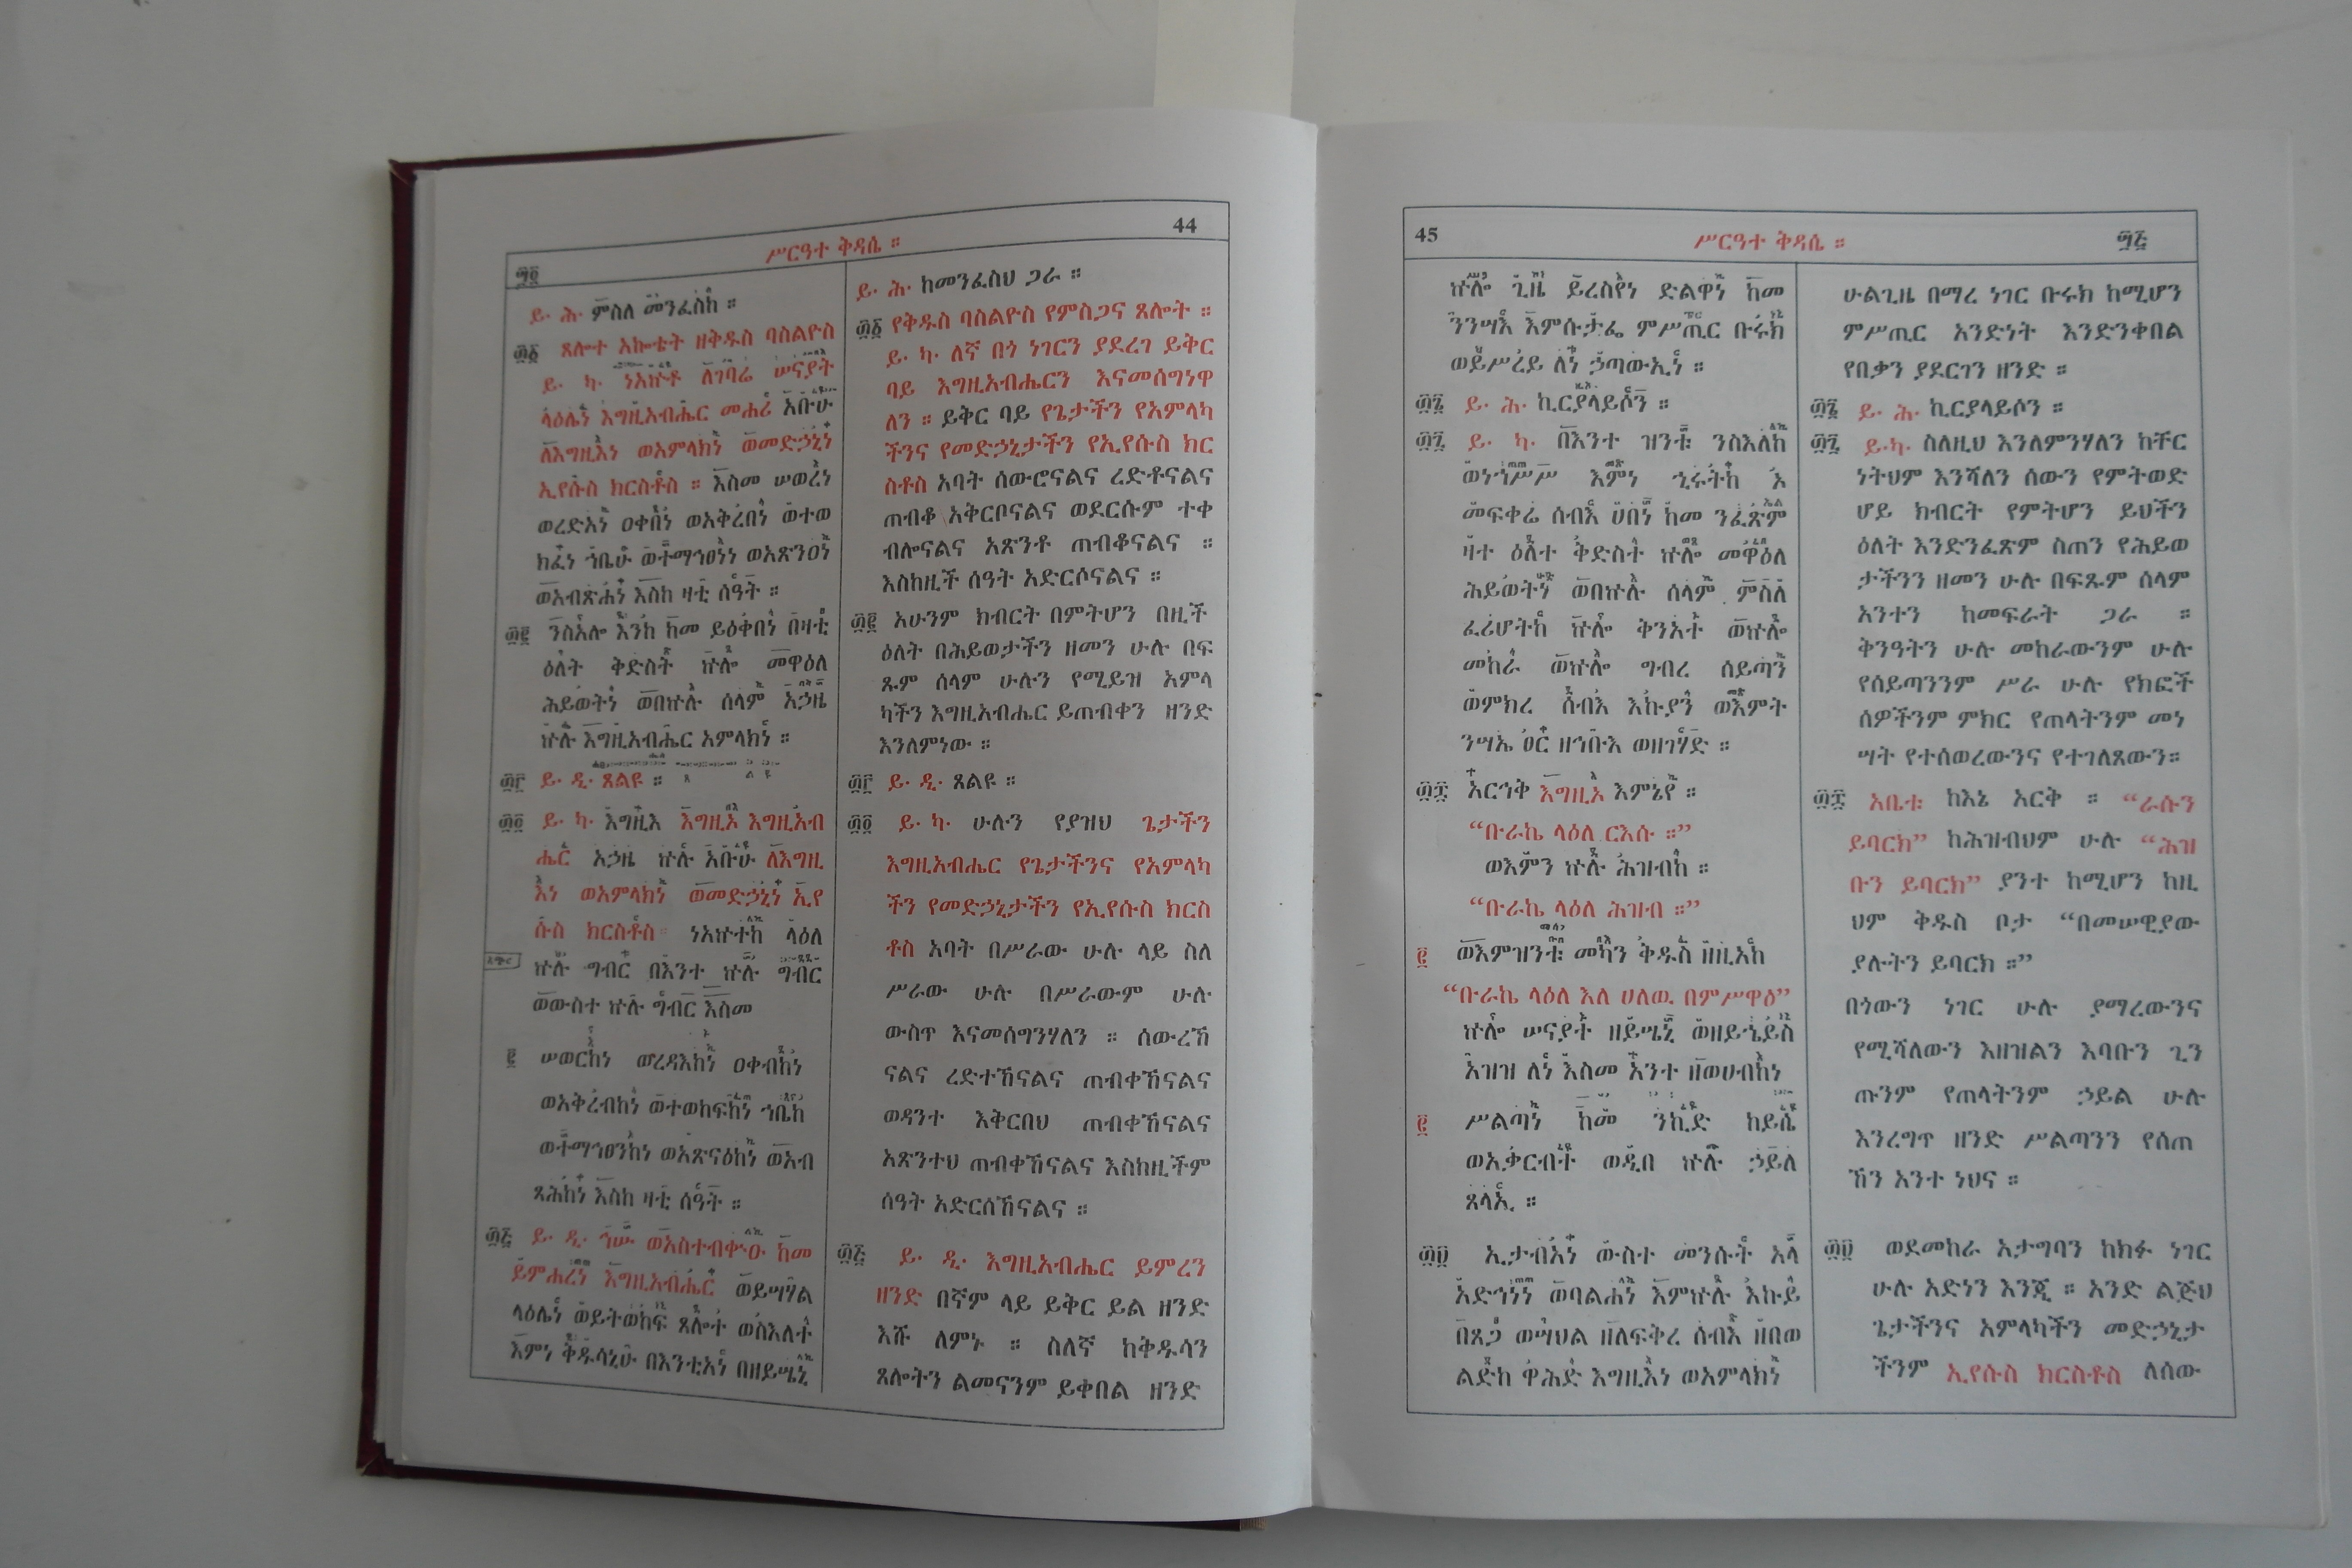 44
ሥርዓተ ቅዳሴ ።
፵፬
ይ፡ ሕ፡ ምስለ መንፈስከ ።
፴፩ ጸሎተ አኰቴት ዘቅዱስ ባስልዮስ
ይ፡ ካ፡ ነአኵቶ ለገባሬ ሠናያት
ላዕሌነ እግዚአብሔር መሐሪ አቡሁ
ለእግዚእነ ወአምላክነ ወመድኃኒነ
ኢየሱስ ክርስቶስ ። እስመ ሠወረነ
ወረድአነ ዐቀበነ ወአቅረበነ ወተወ
ክፈነ ኀቤሁ ወተማኅፀነነ ወአጽንዐነ
ወአብጽሐነ እስከ ዛቲ ሰዓት ።
፴፪ ንስአሎ እንከ ከመ ይዕቀበነ በዛቲ
ዕለት ቅድስት ኵሎ መዋዕለ
ሕይወትነ ወበኵሉ ሰላም አኃዜ
ኵሉ እግዚአብሔር አምላክነ ።
፴፫ ይ፡ ዲ፡ ጸልዩ ።
፴፬ ይ፡ ካ፡ እግዚእ እግዚእ እግዚአብ
ሔር አኃዜ ኵሉ አቡሁ ለእግዚ
እነ ወአምላክነ ወመድኃኒነ ኢየ
ሱስ ክርስቶስ። ነአኵተከ ላዕለ
ኵሉ ግብር በእንተ ኵሉ ግብር
ወውስተ ኵሉ ግብር እስመ
፪ ሠወርከነ ወረዳእከነ ዐቀብከነ
ወአቅረብከነ ወተወከፍከነ ኀቤከ
ወተማኅፀንከነ ወአጽናዕከነ ወአብ
ጻሕከነ እስከ ዛቲ ሰዓት ።
፴፭ ይ፡ ዲ፡ ኀሡ ወአስተብቍዑ ከመ
ይምሐረነ እግዚአብሔር ወይሣሃል
ላዕሌነ ወይትወከፍ ጸሎተ ወስእለተ
እምነ ቅዱሳኒሁ በእንቲአነ በዘይሤኒ
ይ፡ ሕ፡ ከመንፈስህ ጋራ ።
፴፩ የቅዱስ ባስልዮስ የምስጋና ጸሎት ።
ይ፡ ካ፡ ለኛ በጎ ነገርን ያደረገ ይቅር
ባይ እግዚአብሔርን እናመሰግነዋ
ለን ። ይቅር ባይ የጌታችን የአምላካ
ችንና የመድኃኒታችን የኢየሱስ ክር
ስቶስ አባት ሰውሮናልና ረድቶናልና
ጠብቆ አቅርቦናልና ወደርሱም ተቀ
ብሎናልና አጽንቶ ጠብቆናልና ።
እስከዚች ሰዓት አድርሶናልና ።
፴፪ አሁንም ክብርት በምትሆን በዚች
ዕለት በሕይወታችን ዘመን ሁሉ በፍ
ጹም ሰላም ሁሉን የሚይዝ አምላ
ካችን እግዚአብሔር ይጠብቀን ዘንድ
እንለምነው ።
፴፫ ይ፡ ዲ፡ ጸልዩ ።
፴፬ ይ፡ ካ፡ ሁሉን የያዝህ ጌታችን
እግዚአብሔር የጌታችንና የአምላካ
ችን የመድኃኒታችን የኢየሱስ ክርስ
ቶስ አባት በሥራው ሁሉ ላይ ስለ
ሥራው ሁሉ በሥራውም ሁሉ
ውስጥ እናመሰግንሃለን ። ሰውረኸ
ናልና ረድተኸናልና ጠብቀኸናልና
ወዳንተ እቅርበህ ጠብቀኸናልና
አጽንተህ ጠብቀኸናልና እስከዚችም
ሰዓት አድርሰኸናልና ።
፴፭ ይ፡ ዲ፡ እግዚአብሔር ይምረን
ዘንድ በኛም ላይ ይቅር ይል ዘንድ
እሹ ለምኑ ። ስለኛ ከቅዱሳን
ጸሎትን ልመናንም ይቀበል ዘንድ
45
ሥርዓተ ቅዳሴ ።
፵፭
ኵሎ ጊዜ ይረስየነ ድልዋነ ከመ
ንንሣእ እምሱታፌ ምሥጢር ቡሩክ
ወይሥረይ ለነ ኃጣውኢነ ።
፴፮ ይ፡ ሕ፡ ኪርያላይሶን ።
፴፯ ይ፡ ካ፡ በእንተ ዝንቱ ንስእለከ
ወነኀሥሥ እምነ ኂሩትከ ኦ
መፍቀሬ ሰብእ ሀበነ ከመ ንፈጽም
ዛተ ዕለተ ቅድስተ ኵሎ መዋዕለ
ሕይወትነ ወበኵሉ ሰላም ምስለ
ፈሪሆትከ ኵሎ ቅንአተ ወኵሎ
መከራ ወኵሎ ግብረ ሰይጣን
ወምክረ ሰብእ እኩያን ወእምት
ንሣኤ ፀር ዘኀቡእ ወዘገሃድ ።
፴፰ አርኅቅ እግዚኦ እምኔየ ።
“ቡራኬ ላዕለ ርእሱ ።”
ወእምን ኵሉ ሕዝብከ ።
“ቡራኬ ላዕለ ሕዝብ ።”
፪ ወእምዝንቱ መካን ቅዱስ ዘዚአከ
“ቡራኬ ላዕለ እለ ሀለዉ በምሥዋዕ”
ኵሎ ሠናያተ ዘይሤኒ ወዘይኄይስ
አዝዝ ለነ እስመ አንተ ዘወሀብከነ
፪ ሥልጣነ ከመ ንኪድ ከይሴ
ወአቃርብተ ወዲበ ኵሉ ኃይለ
ጸላኢ ።
፴፱ ኢታብአነ ውስተ መንሱት አላ
አድኅነነ ወባልሐነ እምኵሉ እኩይ
በጸጋ ወሣህል ዘለፍቅረ ሰብእ ዘበወ
ልድከ ዋሕድ እግዚእነ ወአምላክነ
ሁልጊዜ በማረ ነገር ቡሩክ ከሚሆን
ምሥጢር አንድነት እንድንቀበል
የበቃን ያደርገን ዘንድ ።
፴፮ ይ፡ ሕ፡ ኪርያላይሶን ።
፴፯ ይ፡ካ፡ ስለዚህ እንለምንሃለን ከቸር
ነትህም እንሻለን ሰውን የምትወድ
ሆይ ክብርት የምትሆን ይህችን
ዕለት እንድንፈጽም ስጠን የሕይወ
ታችንን ዘመን ሁሉ በፍጹም ሰላም
አንተን ከመፍራት ጋራ ።
ቅንዓትን ሁሉ መከራውንም ሁሉ
የሰይጣንንም ሥራ ሁሉ የክፎች
ሰዎችንም ምክር የጠላትንም መነ
ሣት የተሰወረውንና የተገለጸውን።
፴፰ አቤቱ ከእኔ አርቅ ። “ራሱን
ይባርክ” ከሕዝብህም ሁሉ “ሕዝ
ቡን ይባርክ” ያንተ ከሚሆን ከዚ
ህም ቅዱስ ቦታ “በመሠዊያው
ያሉትን ይባርክ ።”
በጎውን ነገር ሁሉ ያማረውንና
የሚሻለውን እዘዝልን እባቡን ጊን
ጡንም የጠላትንም ኃይል ሁሉ
እንረግጥ ዘንድ ሥልጣንን የሰጠ
ኸን አንተ ነህና ።
፴፱ ወደመከራ አታግባን ከክፉ ነገር
ሁሉ አድነን እንጂ ። አንድ ልጅህ
ጌታችንና አምላካችን መድኃኒታ
ችንም ኢየሱስ ክርስቶስ ለሰው